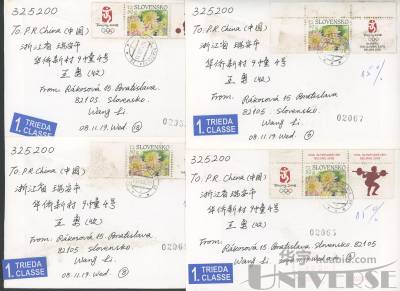 325200
SLOVENSKO
Beijing 2008
To: P.R. China (中国)
浙江省 瑞安市
华侨新村 9幢4号
王 (收)
From: Rákosová 15. Bratislava
82105 Slovensko.
Wang Li
08.11.19. Wed
1. TRIEDA
CLASSE
325200
SLOVENSKO
Beijing 2008
To: P.R. China (中国)
浙江省 瑞安市
华侨新村 9幢4号
王 (收)
From: Rákosová 15. Bratislava.
82105 Slovensko.
Wang Li
08.11.19. Wed
02067
1. TRIEDA
CLASSE
325200
SLOVENSKO
To: P.R. China (中国)
浙江省 瑞安市
华侨新村 9幢4号
王 (收)
From: Rákosová 15. Bratislava
82105 Slovensko.
Wang Li
08.11.19. Wed
1. TRIEDA
CLASSE
325200
SLOVENSKO
Beijing 2008
To: P.R. China (中国)
浙江省 瑞安市
华侨新村 9幢4号
王 (收)
From: Rákosová 15. Bratislava 82105
Slovensko.
Wang Li
08.11.19. Wed
1. TRIEDA
CLASSE
UNIVERSE